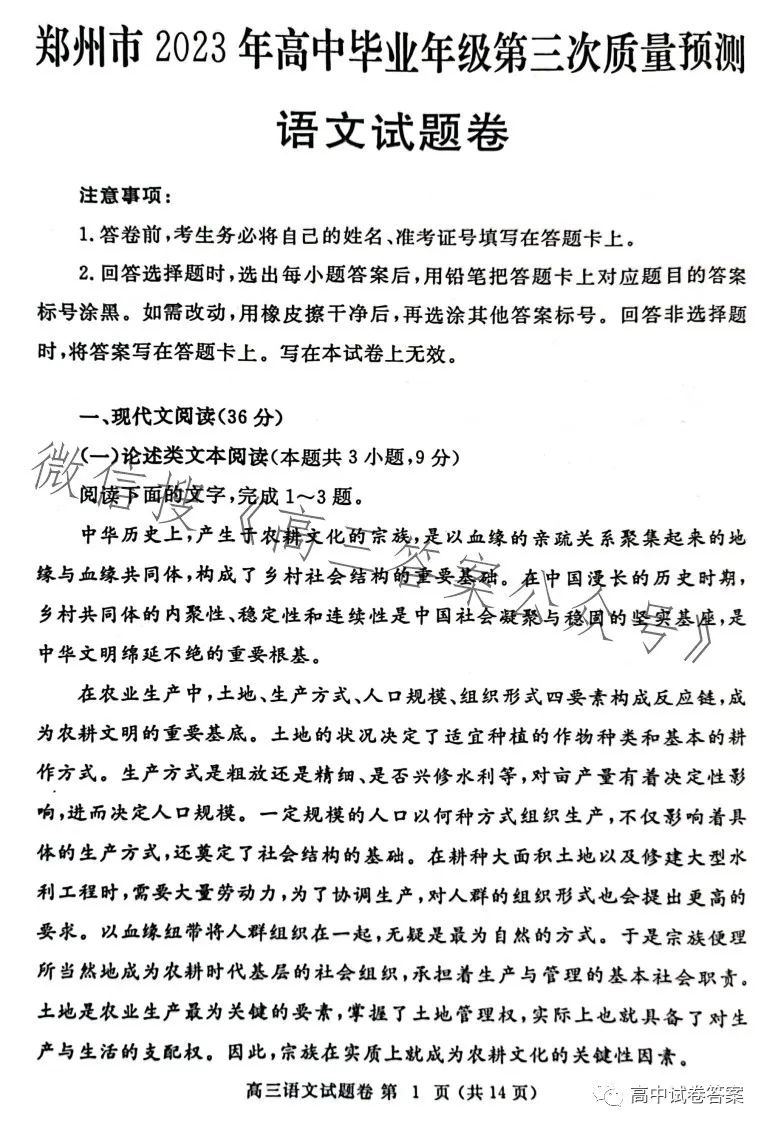 郑州市 2023 年高中毕业年级第三次质量预测
语文试题卷
注意事项：
1.答卷前,考生务必将自己的姓名、准考证号填写在答题卡上。
2.回答选择题时,选出每小题答案后,用铅笔把答题卡上对应题目的答案
标号涂黑。如需改动,用橡皮擦干净后,再选涂其他答案标号。回答非选择题
时,将答案写在答题卡上。写在本试卷上无效。
一、现代文阅读(36分)
(一)论述类文本阅读(本题共3小题,9分)
阅读下面的文字,完成1~3题。
中华历史上,产生于农耕文化的宗族,是以血缘的亲疏关系聚集起来的地
缘与血缘共同体,构成了乡村社会结构的重要基础。在中国漫长的历史时期,
乡村共同体的内聚性、稳定性和连续性是中国社会凝聚与稳固的坚实基座,是
中华文明绵延不绝的重要根基。
在农业生产中,土地、生产方式、人口规模、组织形式四要素构成反应链,成
为农耕文明的重要基底。土地的状况决定了适宜种植的作物种类和基本的耕
作方式。生产方式是粗放还是精细、是否兴修水利等,对亩产量有着决定性影
响,进而决定人口规模。一定规模的人口以何种方式组织生产,不仅影响着具
体的生产方式,还奠定了社会结构的基础。在耕种大面积土地以及修建大型水
利工程时,需要大量劳动力,为了协调生产,对人群的组织形式也会提出更高的
要求。以血缘纽带将人群组织在一起,无疑是最为自然的方式。于是宗族便理
所当然地成为农耕时代基层的社会组织,承担着生产与管理的基本社会职责。
土地是农业生产最为关键的要素,掌握了土地管理权,实际上也就具备了对生
产与生活的支配权。因此,宗族在实质上就成为农耕文化的关键性因素。
高三语文试题卷 第 1 页(共14页)
高中试卷答案
微信搜《高三答案公众号》